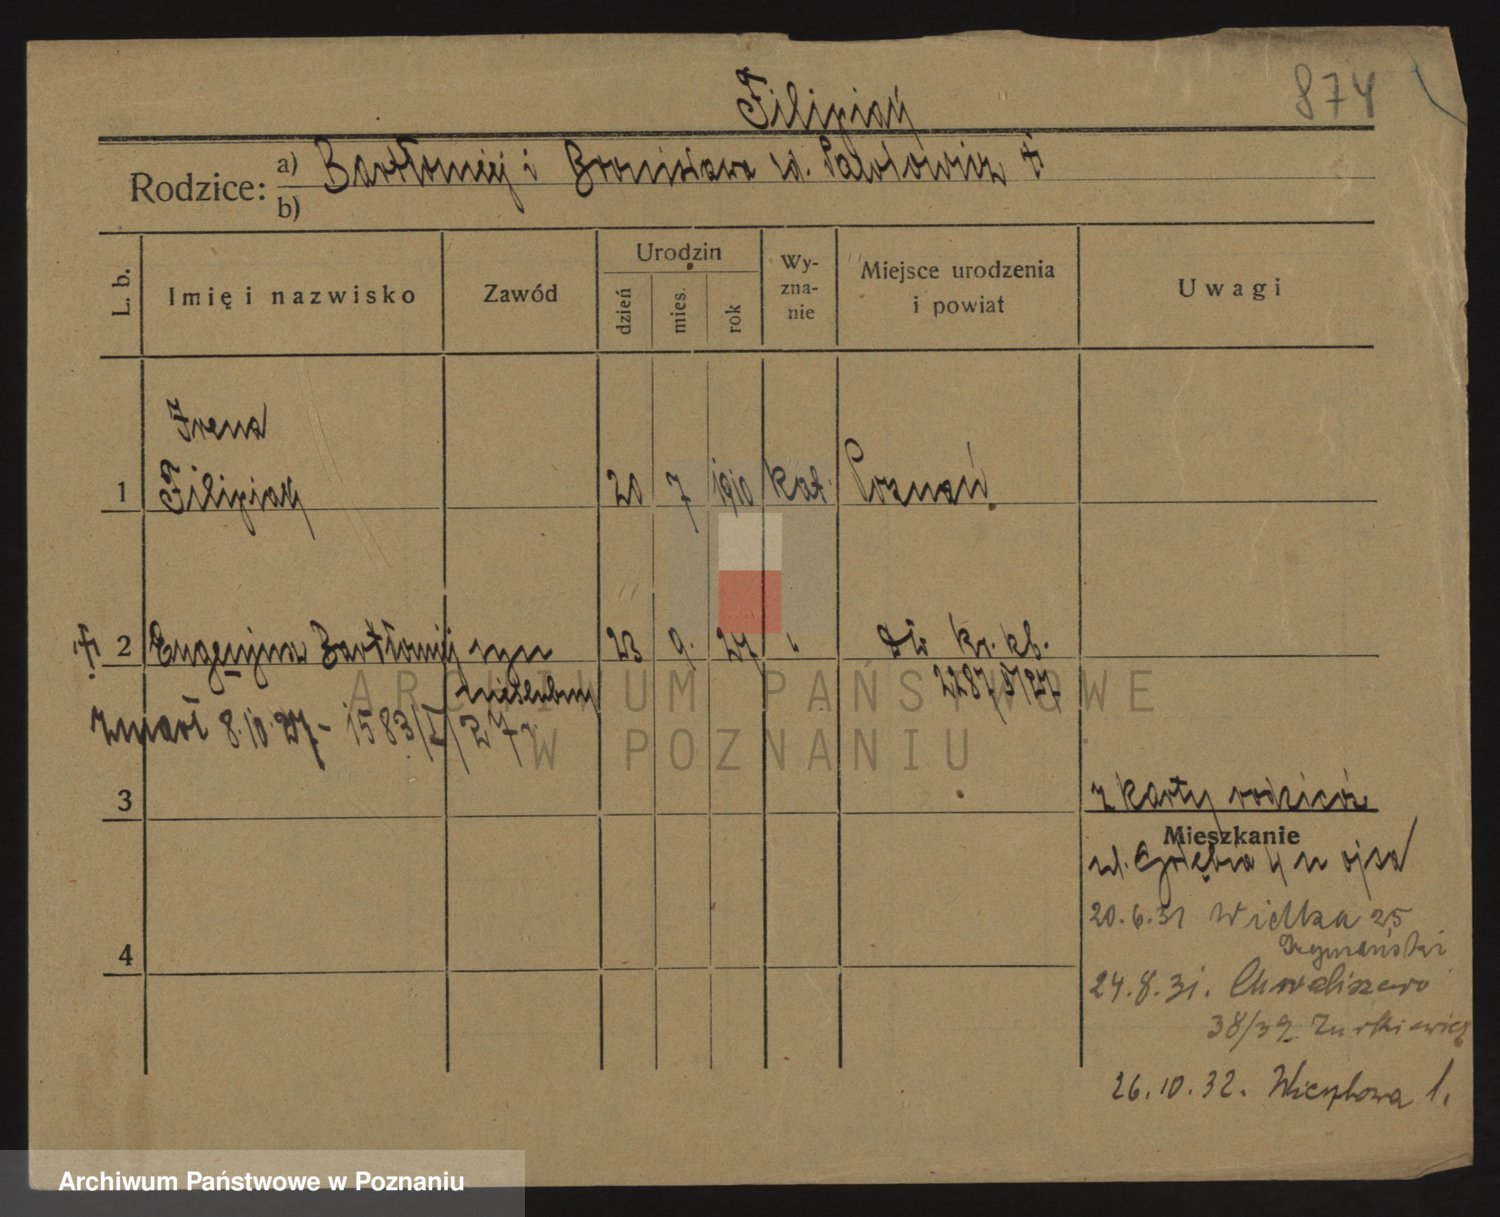 874
Filipiak
Rodzice: a) Bartłomiej i Bronisława zd. Pawłowicz †
b)
L. b. Imię i nazwisko Zawód Urodzin dzień mies. rok Wyznanie Miejsce urodzenia i powiat Uwagi
Irena
1 Filipiak 20 7 1910 kat. Poznań
† 2 Eugenjusz Bartłomiej syn 23 9. 27
nieślubny 2287/27
zmarł 8.10.27 - 1583/I/27 r.
3
z karty rodziców
Mieszkanie
ul. 4 u ojca
20.6.31 Wielka 25
Szymański
4
24.8.31. Chwaliszewo
38/39 Żurkiewicz
26.10.32. 1.
ARCHIWUM PAŃSTWOWE
W POZNANIU
Archiwum Państwowe w Poznaniu